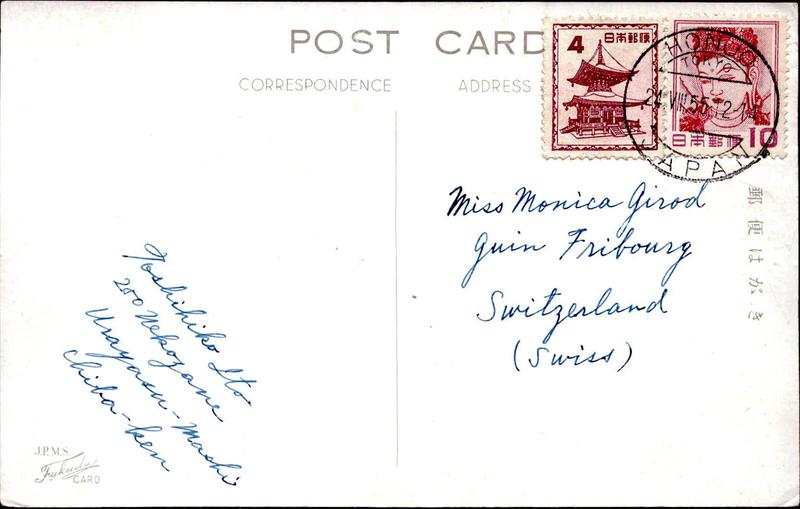 POST CARD
CORRESPONDENCE ADDRESS
4 日本郵便
日本郵便 10
HONGO
TOKYO
24.VIII.55.12-14
JAPAN
郵便はがき
Miss Monica Girod
Guin Fribourg
Switzerland
(Swiss)
Toshihiko Ito
200 Nekozane
Urayasu-Machi
Chiba-Ken
J.P.M.S.
Fukuda
CARD